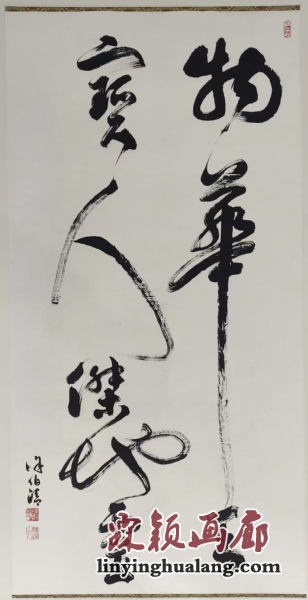 物華天
寶人傑地靈
徐伯清
霖颖画廊
linyinghualang.com